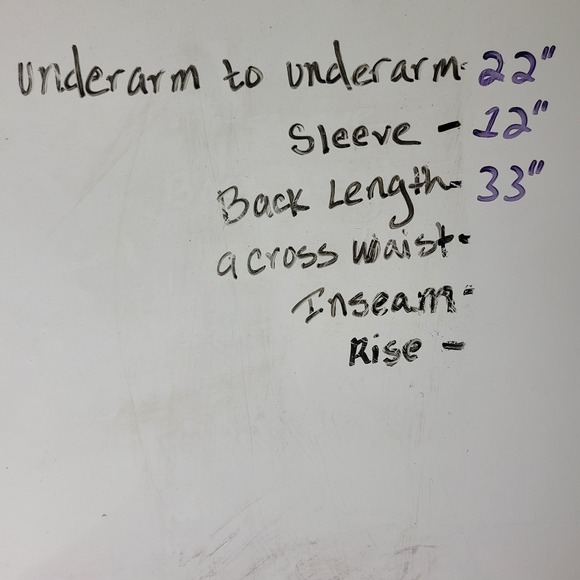 underarm to underarm- 22"
Sleeve - 12"
Back Length- 33"
across waist-
Inseam-
Rise -